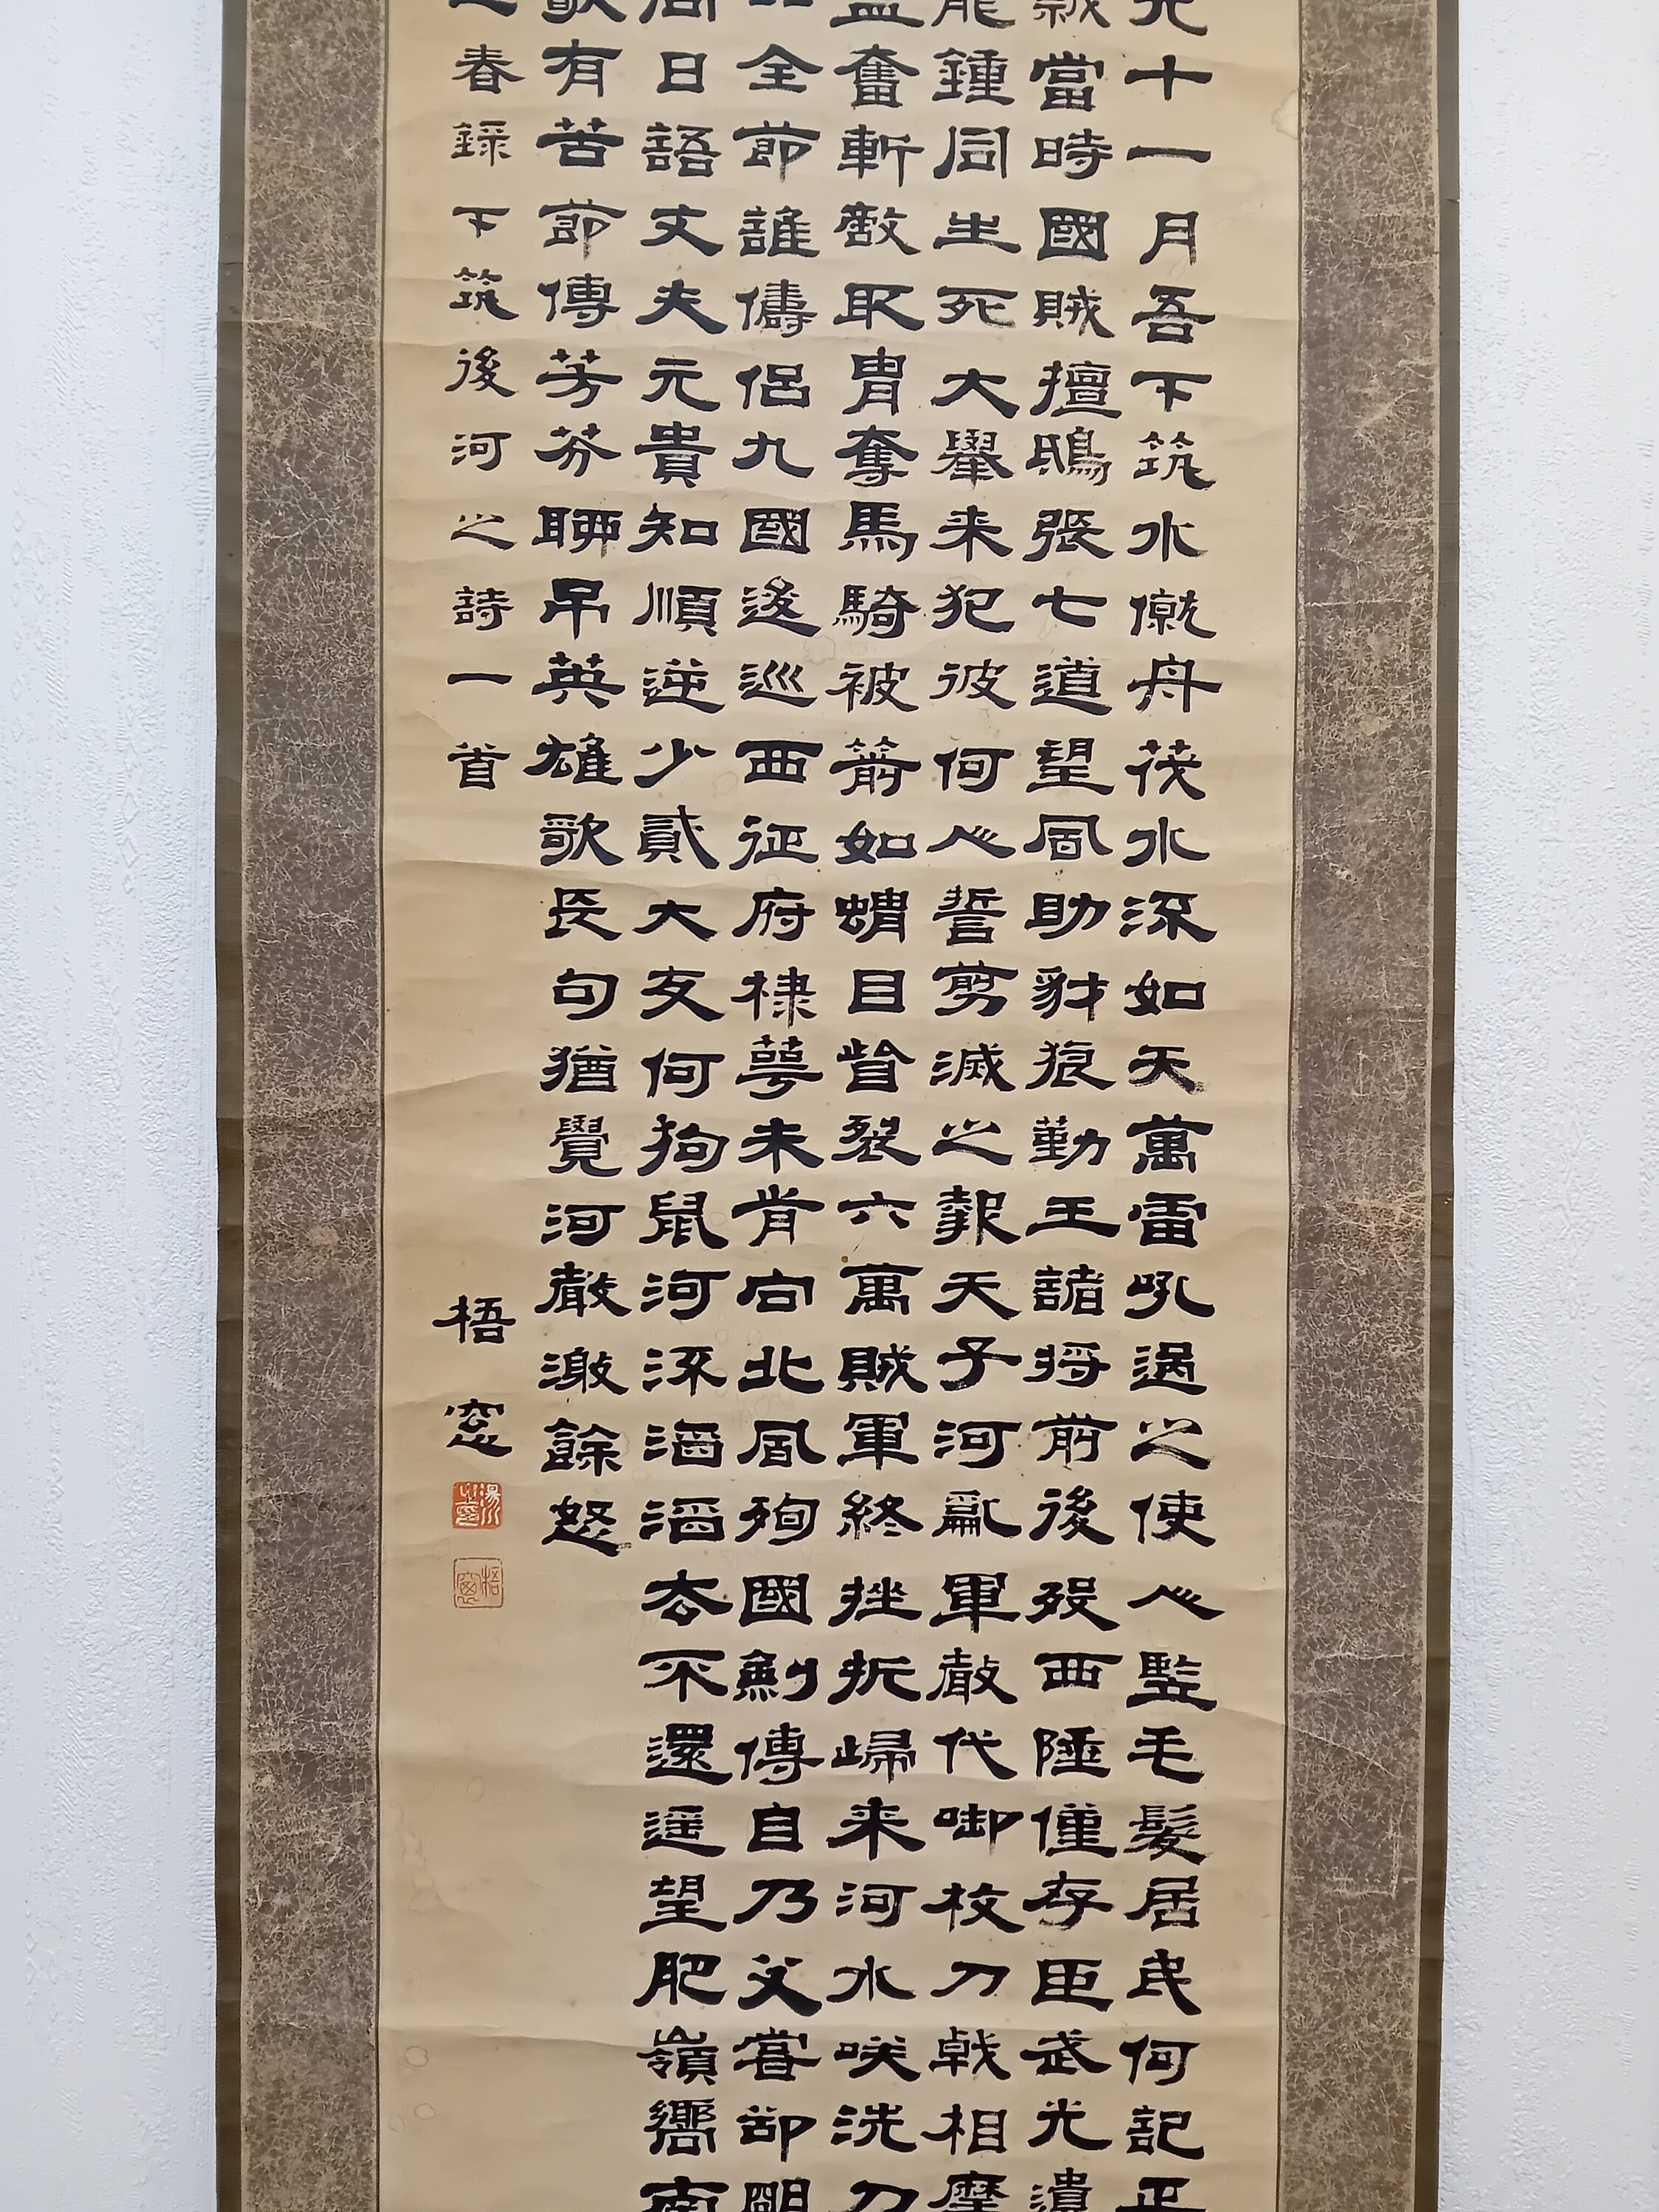 十一月吾下筑水僦舟茷水流如矢萬雷吼過之使人竪毛髮居民何記正
當時國賊擅鴟張七道望風助豺狼勤王諸將前後歿西陲僅存臣武光遺
鍾同生死大舉来犯彼何人誓剪滅之報天子河亂軍聲代啣枚刀戟相摩
益奮斬敵取冑奪馬騎被箭如蝟目眥裂六萬賊軍終挫折歸来河水咲洗刀
全節誰儔侶九國逡巡西征府棣萼未肯向北風殉國劍傳自乃父嘗卻明
同日語丈夫元貴知順逆少貳大友何狗鼠河流滔滔去不還遥望肥嶺嚮南
有苦節傳芳芬聊吊英雄歌長句猶覺河聲激餘怒
春録下筑後河之詩一首
梧窓
梧窓